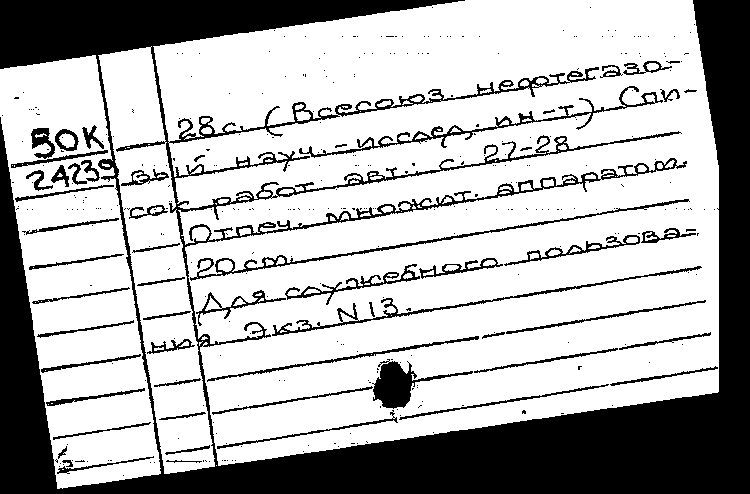 28с. (Всесоюз. нефтегазо-
50К вый науч.-исслед. ин-т). Спи-
24239 сок работ авт.: с. 27-28.
Отпеч. множит. аппаратом.
20 см.
Для служебного пользова=
ния. Экз. N 13.